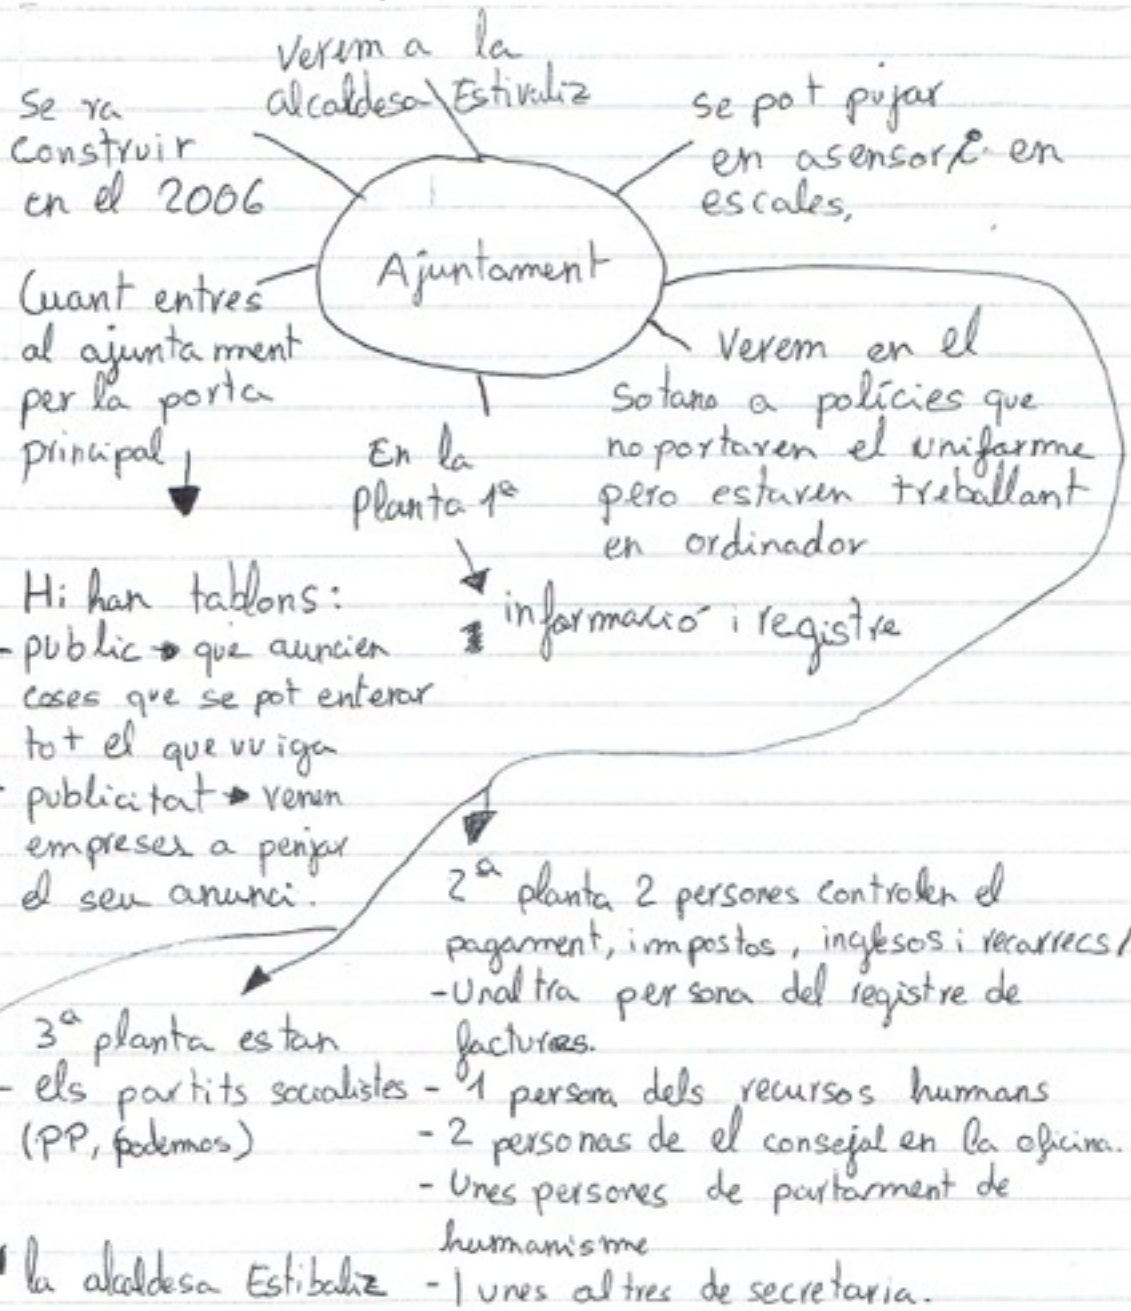 Verem a la
alcaldesa Estivaliz
Se va
construir
en el 2006
se pot pujar
en asensor i en
escales,
Ajuntament
Cuant entres
al ajuntament
per la porta
principal
Hi han tablons:
- public → que auncien
coses que se pot enterar
tot el que vuiga
- publicitat → venen
empreses a penjar
el seu anunci.
En la
Planta 1ª
informació i registre
Verem en el
sotano a polícies que
no portaven el uniforme
pero estaven treballant
en ordinador
2ª planta 2 persones controlen el
pagament, impostos, inglesos i recarrecs/
- Unaltra persona del registre de
factures.
- 1 persona dels recursos humans
- 2 personas de el consejal en la oficina.
- Unes persones de partarment de
humanisme
- I unes altres de secretaria.
3ª planta estan
- els partits socialistes
(PP, podemos)
la alcaldesa Estibaliz